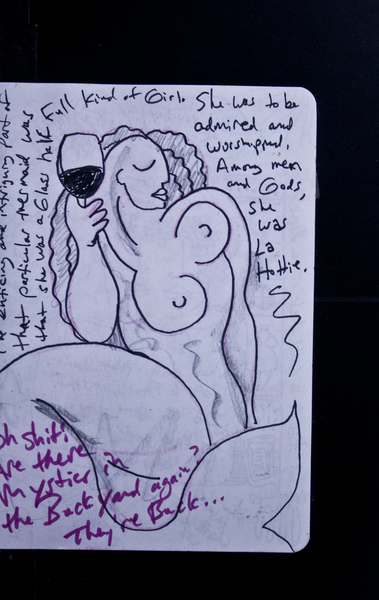 enticing and intriguing part of
that particular mermaid was
that she was a Glass half
Full kind of Girl. She was to be
admired and
worshipped.
Among men
and Gods,
she
was
La
Hottie.
Oh shit!
Are there
in
the Back yard again?
They're Back...